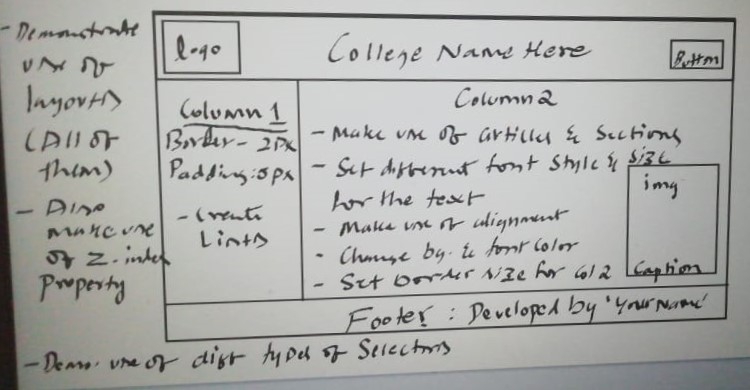 - Demonstrate
use of
layouts
(All of
them)
- Also
make use
of z-index
Property
logo
College Name Here
Button
Column 1
Border - 2px
Padding: 5px
- Create
Lists
Column 2
- Make use of articles & Sections
- Set different font style & size
for the text
- Make use of alignment
- Change bg. & font color
- Set border size for col 2
img
Caption
Footer : Developed by 'Your Name'
- Demo. use of diff types of Selectors